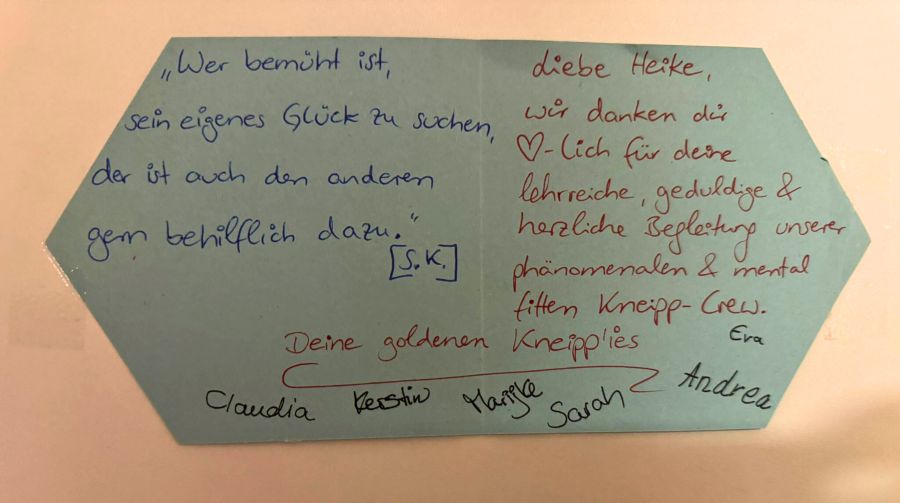 „Wer bemüht ist,
sein eigenes Glück zu suchen,
der ist auch den anderen
gern behilflich dazu."
[S.K.]
Liebe Heike,
wir danken dir
♡-lich für deine
lehrreiche, geduldige &
herzliche Begleitung unserer
phänomenalen & mental
fitten Kneipp-Crew.
Deine goldenen Kneipp'ies
Eva
Claudia Kerstin Marijke Sarah Andrea